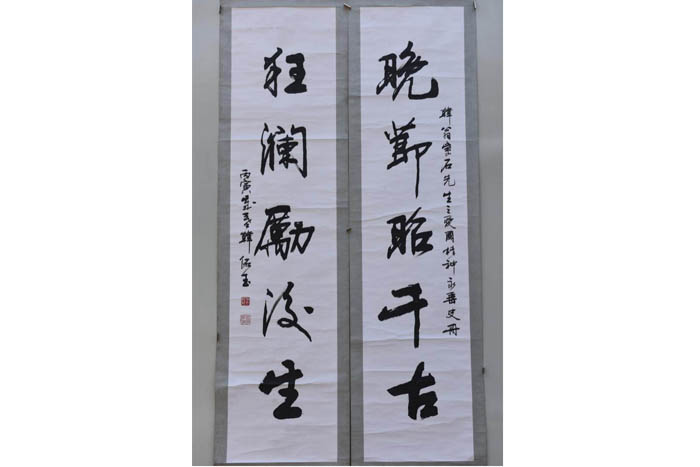 晚節昭千古
韓翁紫石先生之愛國精神永垂史冊
狂瀾勵後生
丙寅歲韓